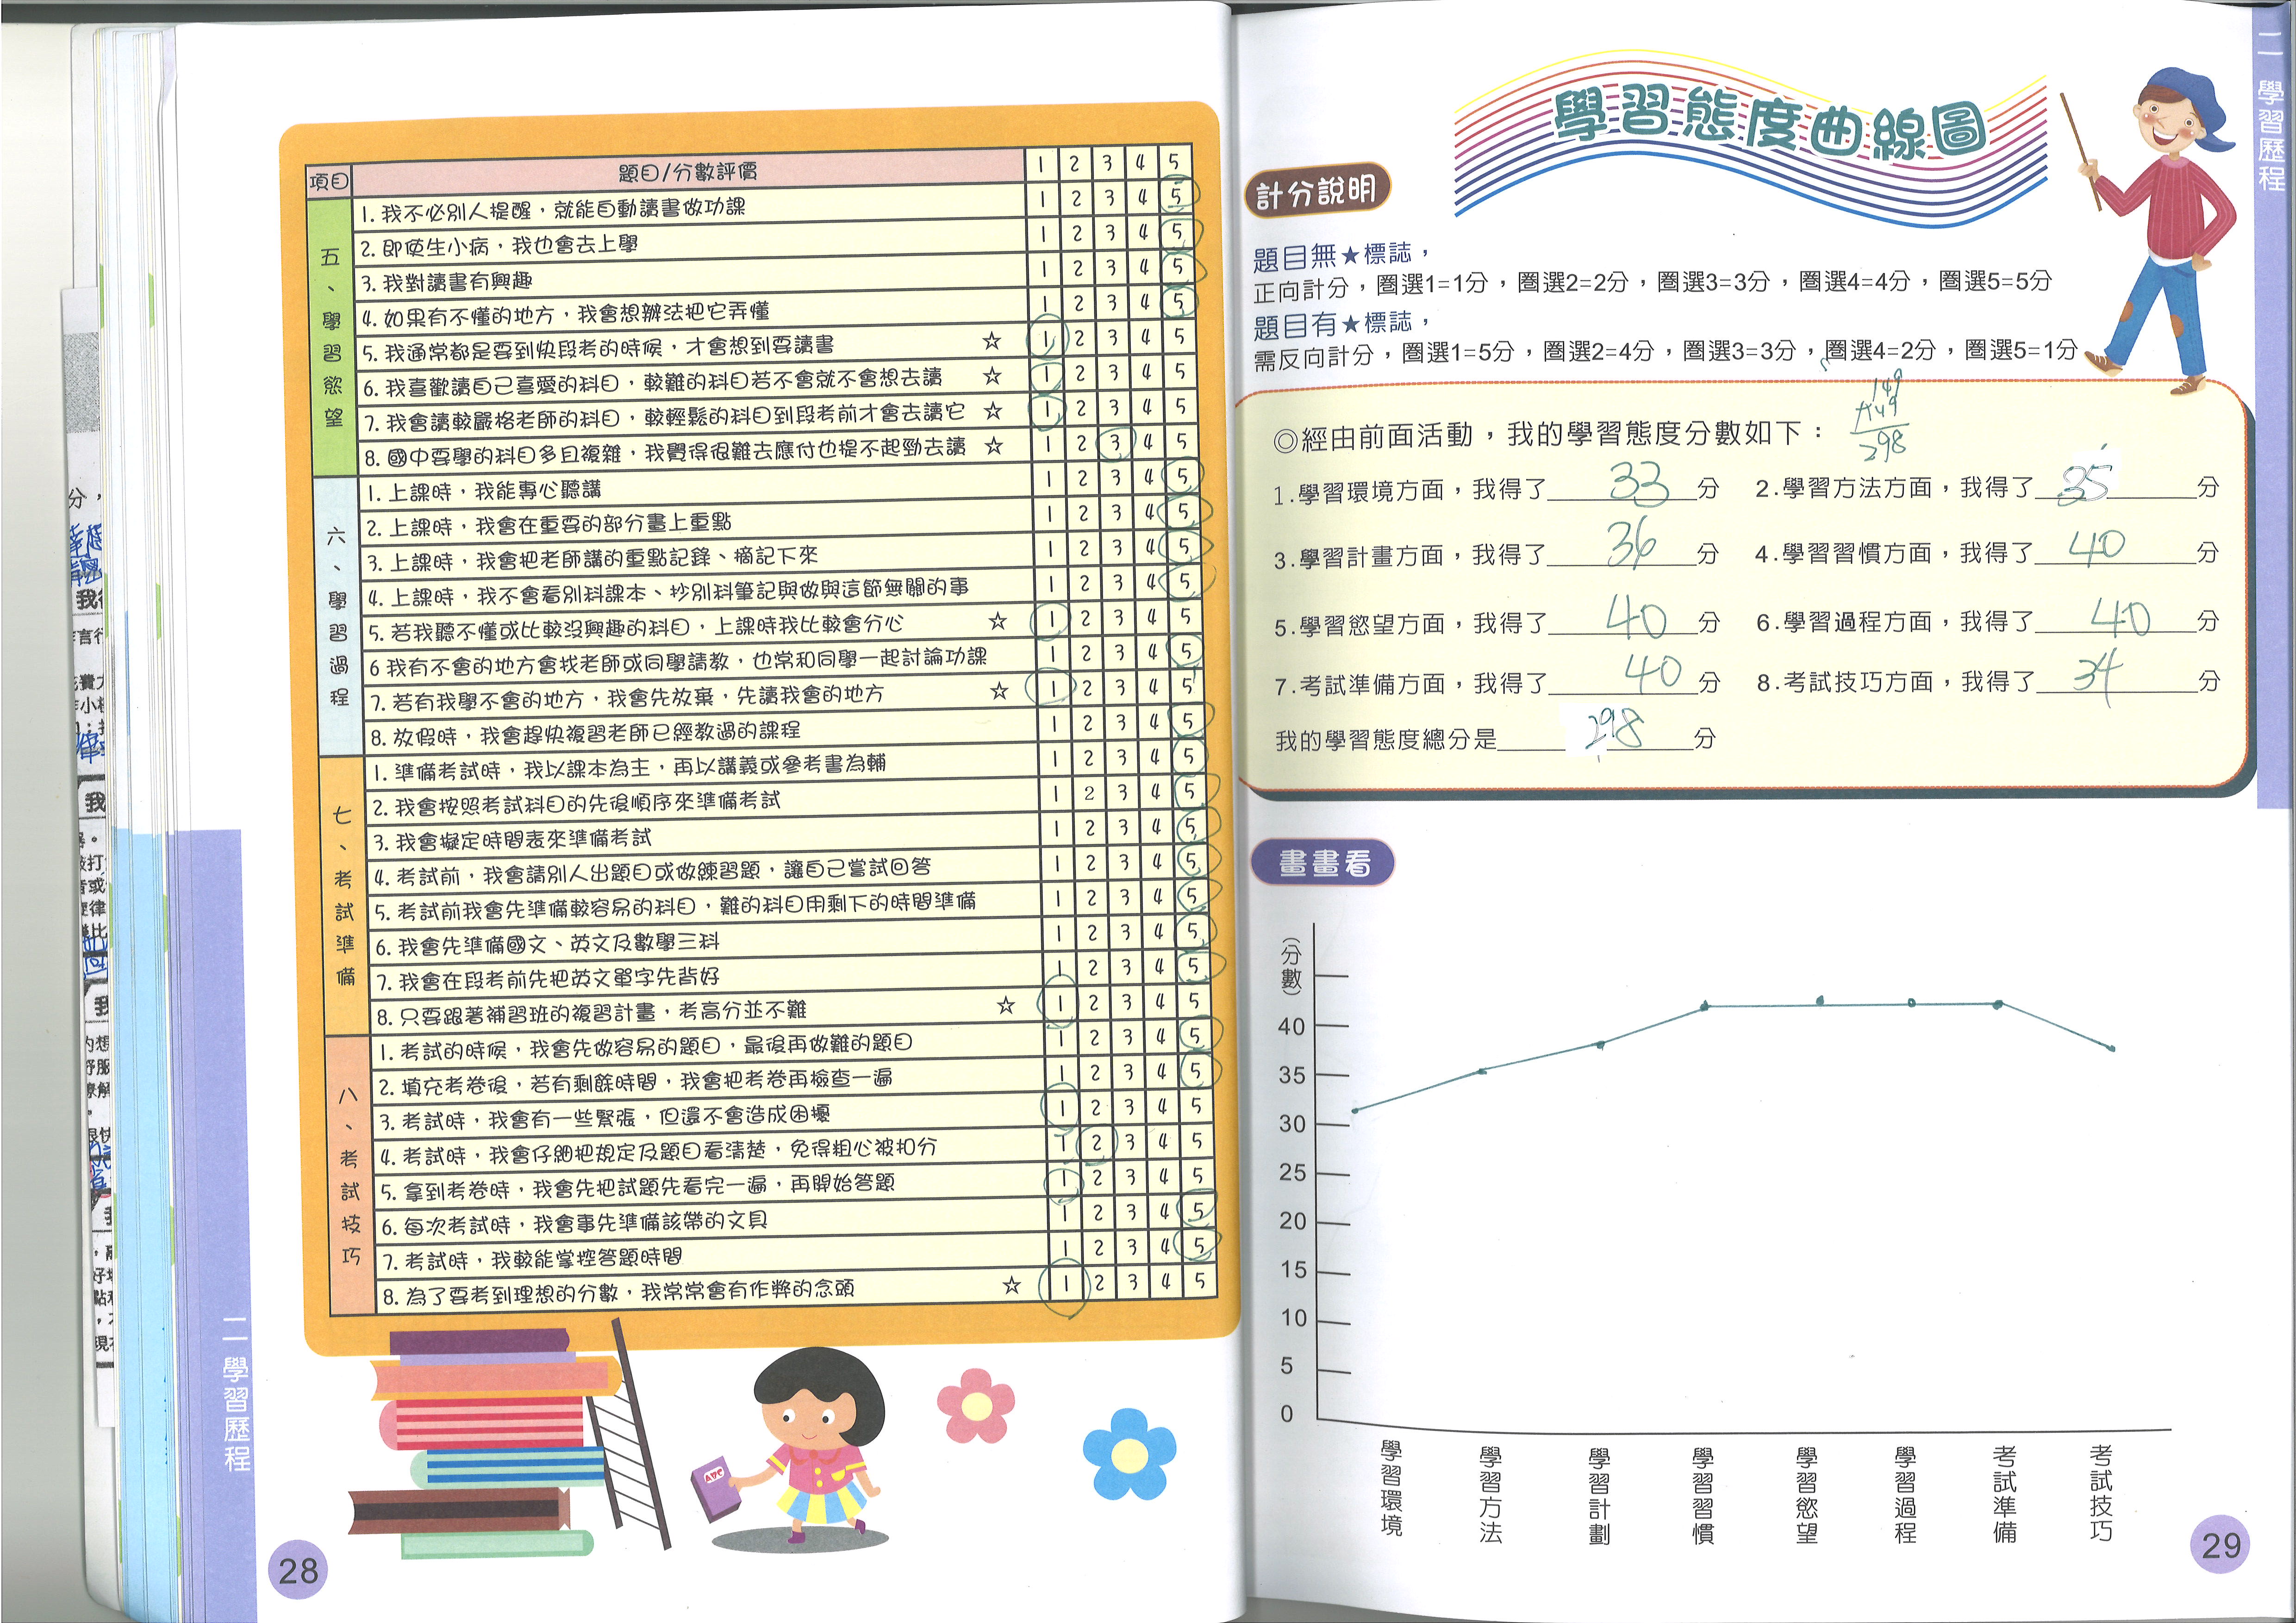 項目 題目/分數評價 1 2 3 4 5
五、學習慾望
1. 我不必別人提醒，就能自動讀書做功課 1 2 3 4 5
2. 即使生小病，我也會去上學 1 2 3 4 5
3. 我對讀書有興趣 1 2 3 4 5
4. 如果有不懂的地方，我會想辦法把它弄懂 1 2 3 4 5
5. 我通常都是要到快段考的時候，才會想到要讀書 ☆ 1 2 3 4 5
6. 我喜歡讀自己喜愛的科目，較難的科目若不會就不會想去讀 ☆ 1 2 3 4 5
7. 我會讀較嚴格老師的科目，較輕鬆的科目到段考前才會去讀它 ☆ 1 2 3 4 5
8. 國中要學的科目多且複雜，我覺得很難去應付也提不起勁去讀 ☆ 1 2 3 4 5
六、學習過程
1. 上課時，我能專心聽講 1 2 3 4 5
2. 上課時，我會在重要的部分畫上重點 1 2 3 4 5
3. 上課時，我會把老師講的重點記錄、摘記下來 1 2 3 4 5
4. 上課時，我不會看別科課本、抄別科筆記與做與這節無關的事 1 2 3 4 5
5. 若我聽不懂或比較沒興趣的科目，上課時我比較會分心 ☆ 1 2 3 4 5
6 我有不會的地方會找老師或同學請教，也常和同學一起討論功課 1 2 3 4 5
7. 若有我學不會的地方，我會先放棄，先讀我會的地方 ☆ 1 2 3 4 5
8. 放假時，我會趕快複習老師已經教過的課程 1 2 3 4 5
七、考試準備
1. 準備考試時，我以課本為主，再以講義或參考書為輔 1 2 3 4 5
2. 我會按照考試科目的先後順序來準備考試 1 2 3 4 5
3. 我會擬定時間表來準備考試 1 2 3 4 5
4. 考試前，我會請別人出題目或做練習題，讓自己嘗試回答 1 2 3 4 5
5. 考試前我會先準備較容易的科目，難的科目用剩下的時間準備 1 2 3 4 5
6. 我會先準備國文、英文及數學三科 1 2 3 4 5
7. 我會在段考前先把英文單字先背好 1 2 3 4 5
8. 只要跟著補習班的複習計畫，考高分並不難 ☆ 1 2 3 4 5
八、考試技巧
1. 考試的時候，我會先做容易的題目，最後再做難的題目 1 2 3 4 5
2. 填充考卷後，若有剩餘時間，我會把考卷再檢查一遍 1 2 3 4 5
3. 考試時，我會有一些緊張，但還不會造成困擾 1 2 3 4 5
4. 考試時，我會仔細把規定及題目看清楚，免得粗心被扣分 1 2 3 4 5
5. 拿到考卷時，我會先把試題先看完一遍，再開始答題 1 2 3 4 5
6. 每次考試時，我會事先準備該帶的文具 1 2 3 4 5
7. 考試時，我較能掌控答題時間 1 2 3 4 5
8. 為了要考到理想的分數，我常常會有作弊的念頭 ☆ 1 2 3 4 5
ABC
二 學習歷程
28
二 學習歷程
學習態度曲線圖
計分說明
題目無★標誌，
正向計分，圈選1=1分，圈選2=2分，圈選3=3分，圈選4=4分，圈選5=5分
題目有★標誌，
需反向計分，圈選1=5分，圈選2=4分，圈選3=3分，圈選4=2分，圈選5=1分
149
+149
298
◎經由前面活動，我的學習態度分數如下：
1.學習環境方面，我得了 33 分 2.學習方法方面，我得了 35 分
3.學習計畫方面，我得了 36 分 4.學習習慣方面，我得了 40 分
5.學習慾望方面，我得了 40 分 6.學習過程方面，我得了 40 分
7.考試準備方面，我得了 40 分 8.考試技巧方面，我得了 34 分
我的學習態度總分是 298 分
畫畫看
(分數)
40
35
30
25
20
15
10
5
0
學習環境 學習方法 學習計劃 學習習慣 學習慾望 學習過程 考試準備 考試技巧
29